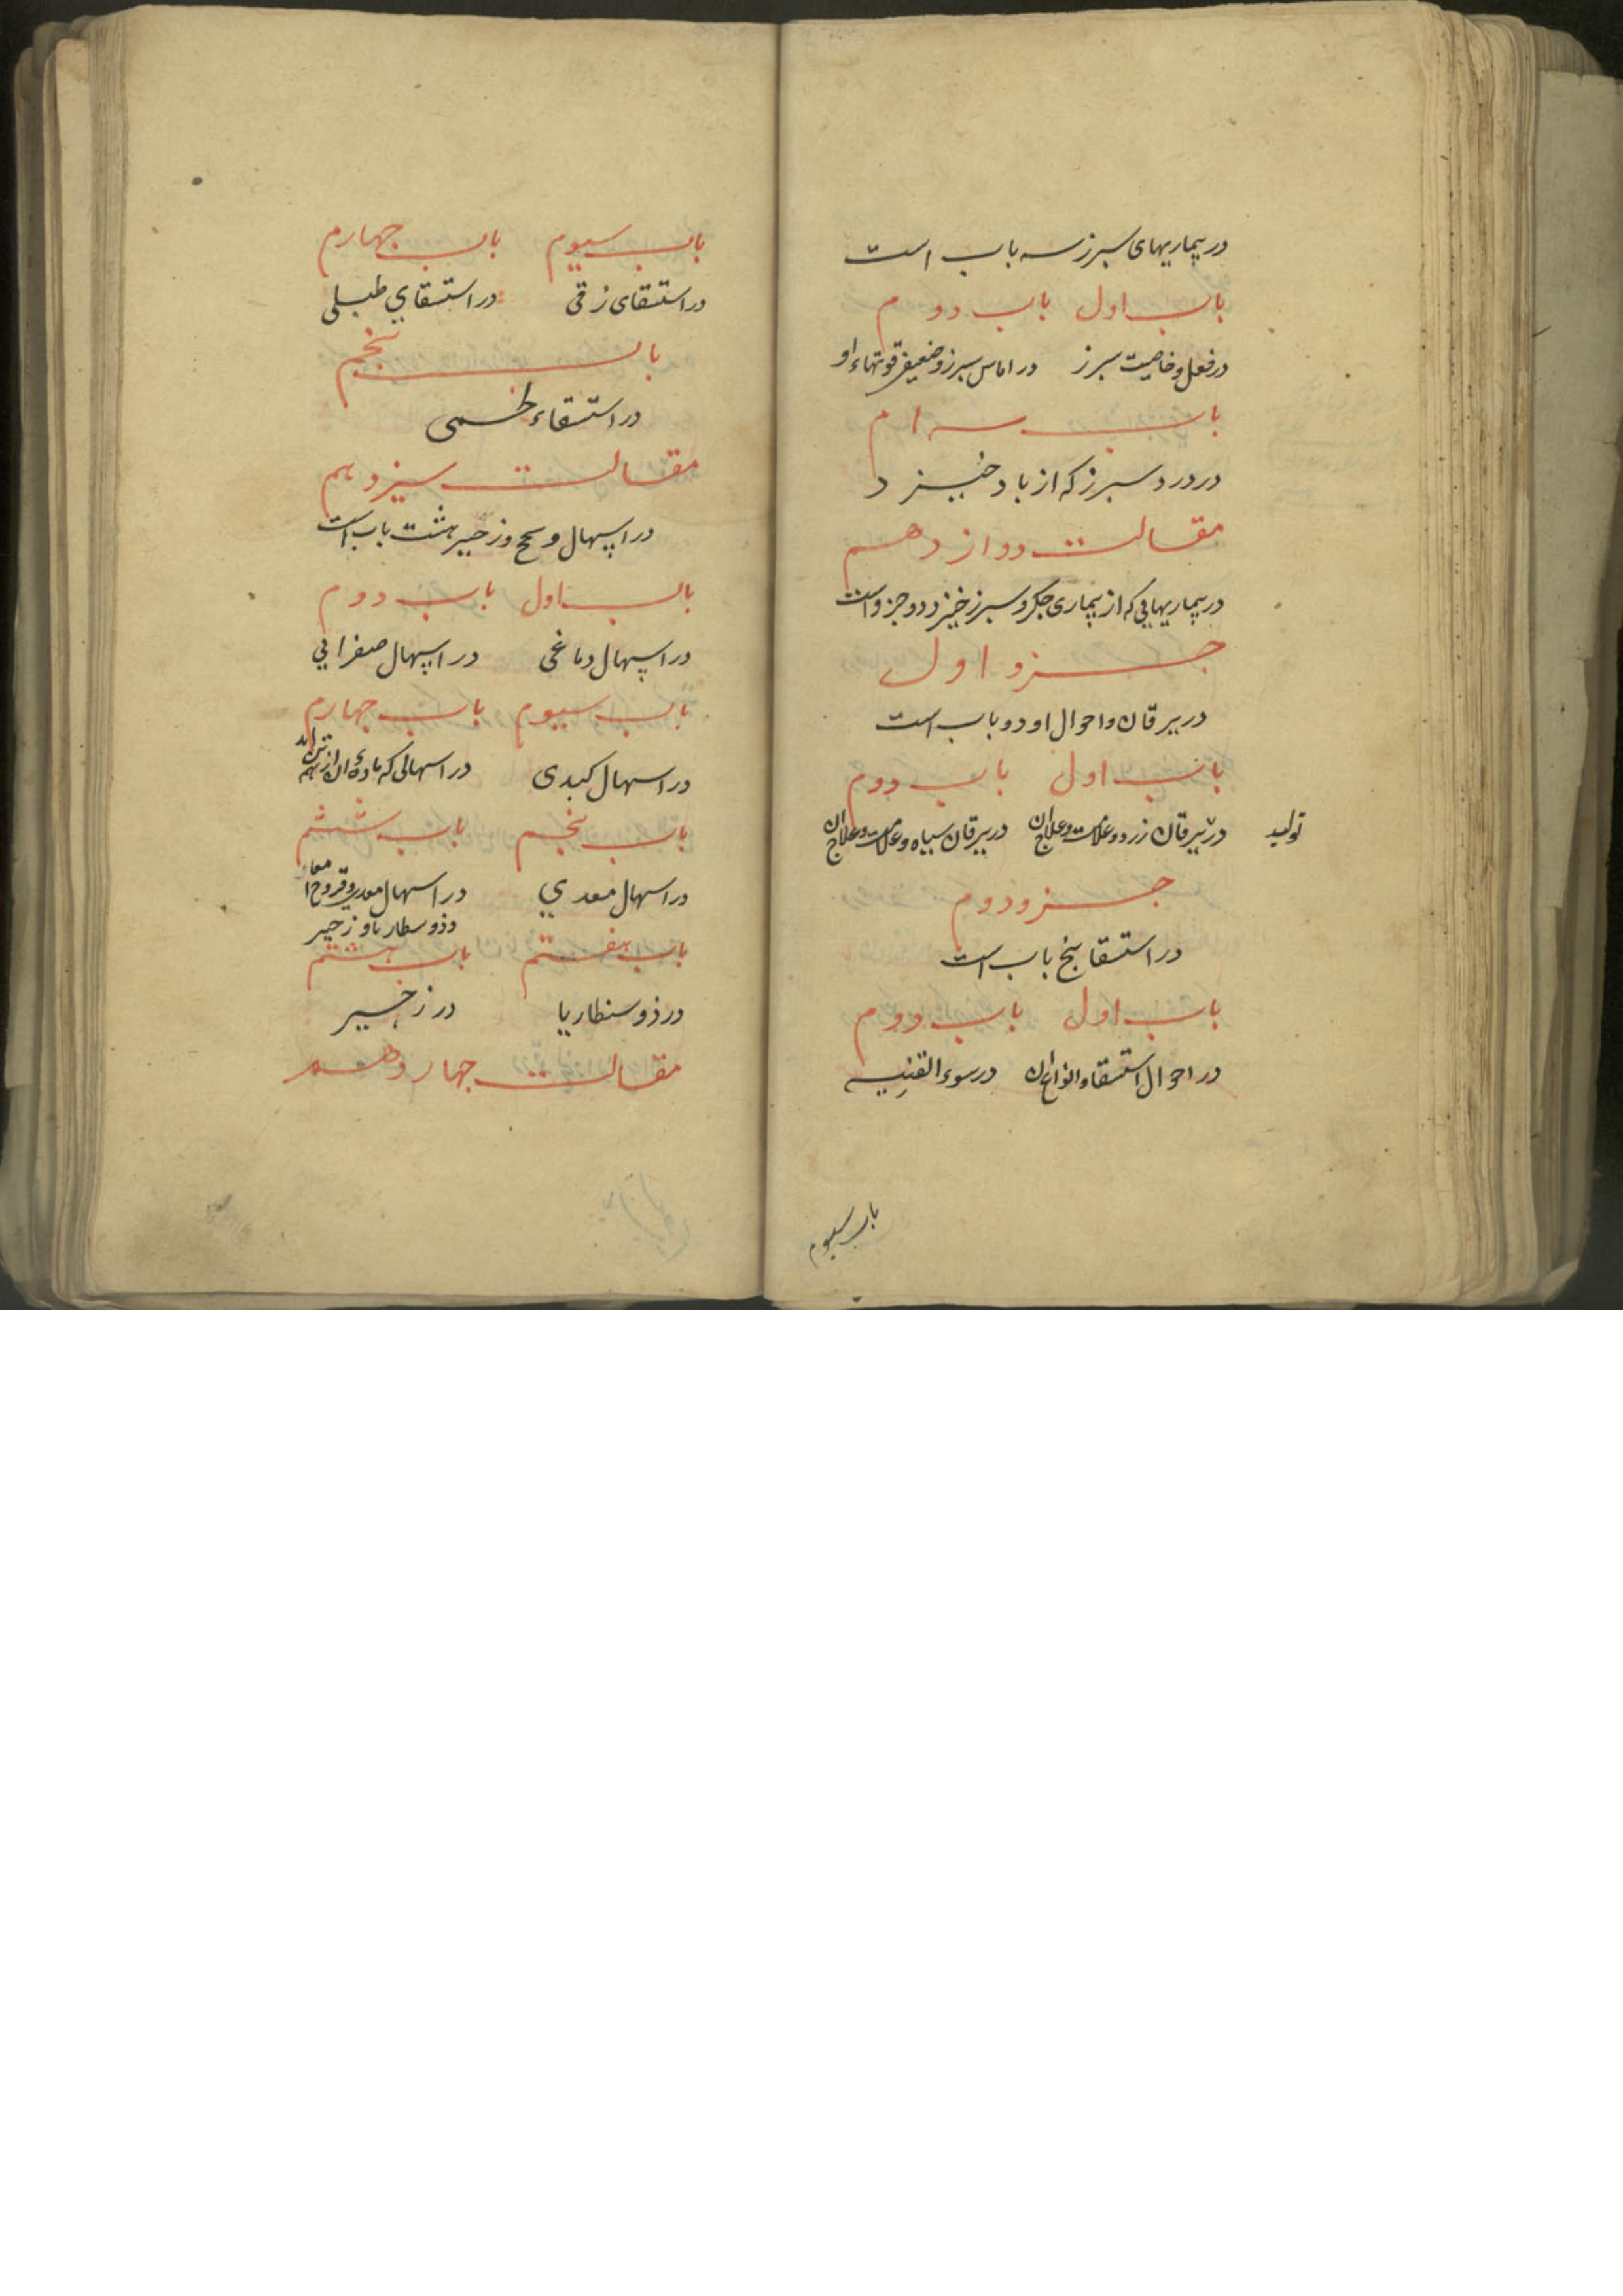 در بیماریهای سپرز سه باب است
باب اول باب دوم
در فعل و خاصیت سپرز در اماس سپرز و ضعیفی قوتهاء او
باب سوم
در درد سپرز که از باد خیزد
مقالت دوازدهم
در بیماریهایی که از بیماری جکر و سپرز خیزد دو جزو است
جزو اول
در یرقان و احوال او دو باب است
باب اول باب دوم
در یرقان زرد و علامت و علاج ان در یرقان سیاه و علامت و علاج ان
تولید
جزو دوم
در استسقا پنج باب است
باب اول باب دوم
در احوال استسقا و انواع ان در سوء القنیه
باب سیوم
باب سیوم باب چهارم
در استسقای زقی در استسقای طبلی
باب پنجم
در استسقاء لحمی
مقالت سیزدهم
در اسهال و سحج و زحیر هشت باب است
باب اول باب دوم
در اسهال دماغی در اسهال صفرایی
باب سیوم باب چهارم
در اسهال کبدی در اسهالی که ماده ان از همه تن اید
باب پنجم باب ششم
در اسهال معدی در اسهال معدی و قروح امعا
و ذوسطاریا و زحیر
باب هفتم باب هشتم
در ذوسنطاریا در زحیر
مقالت چهاردهم